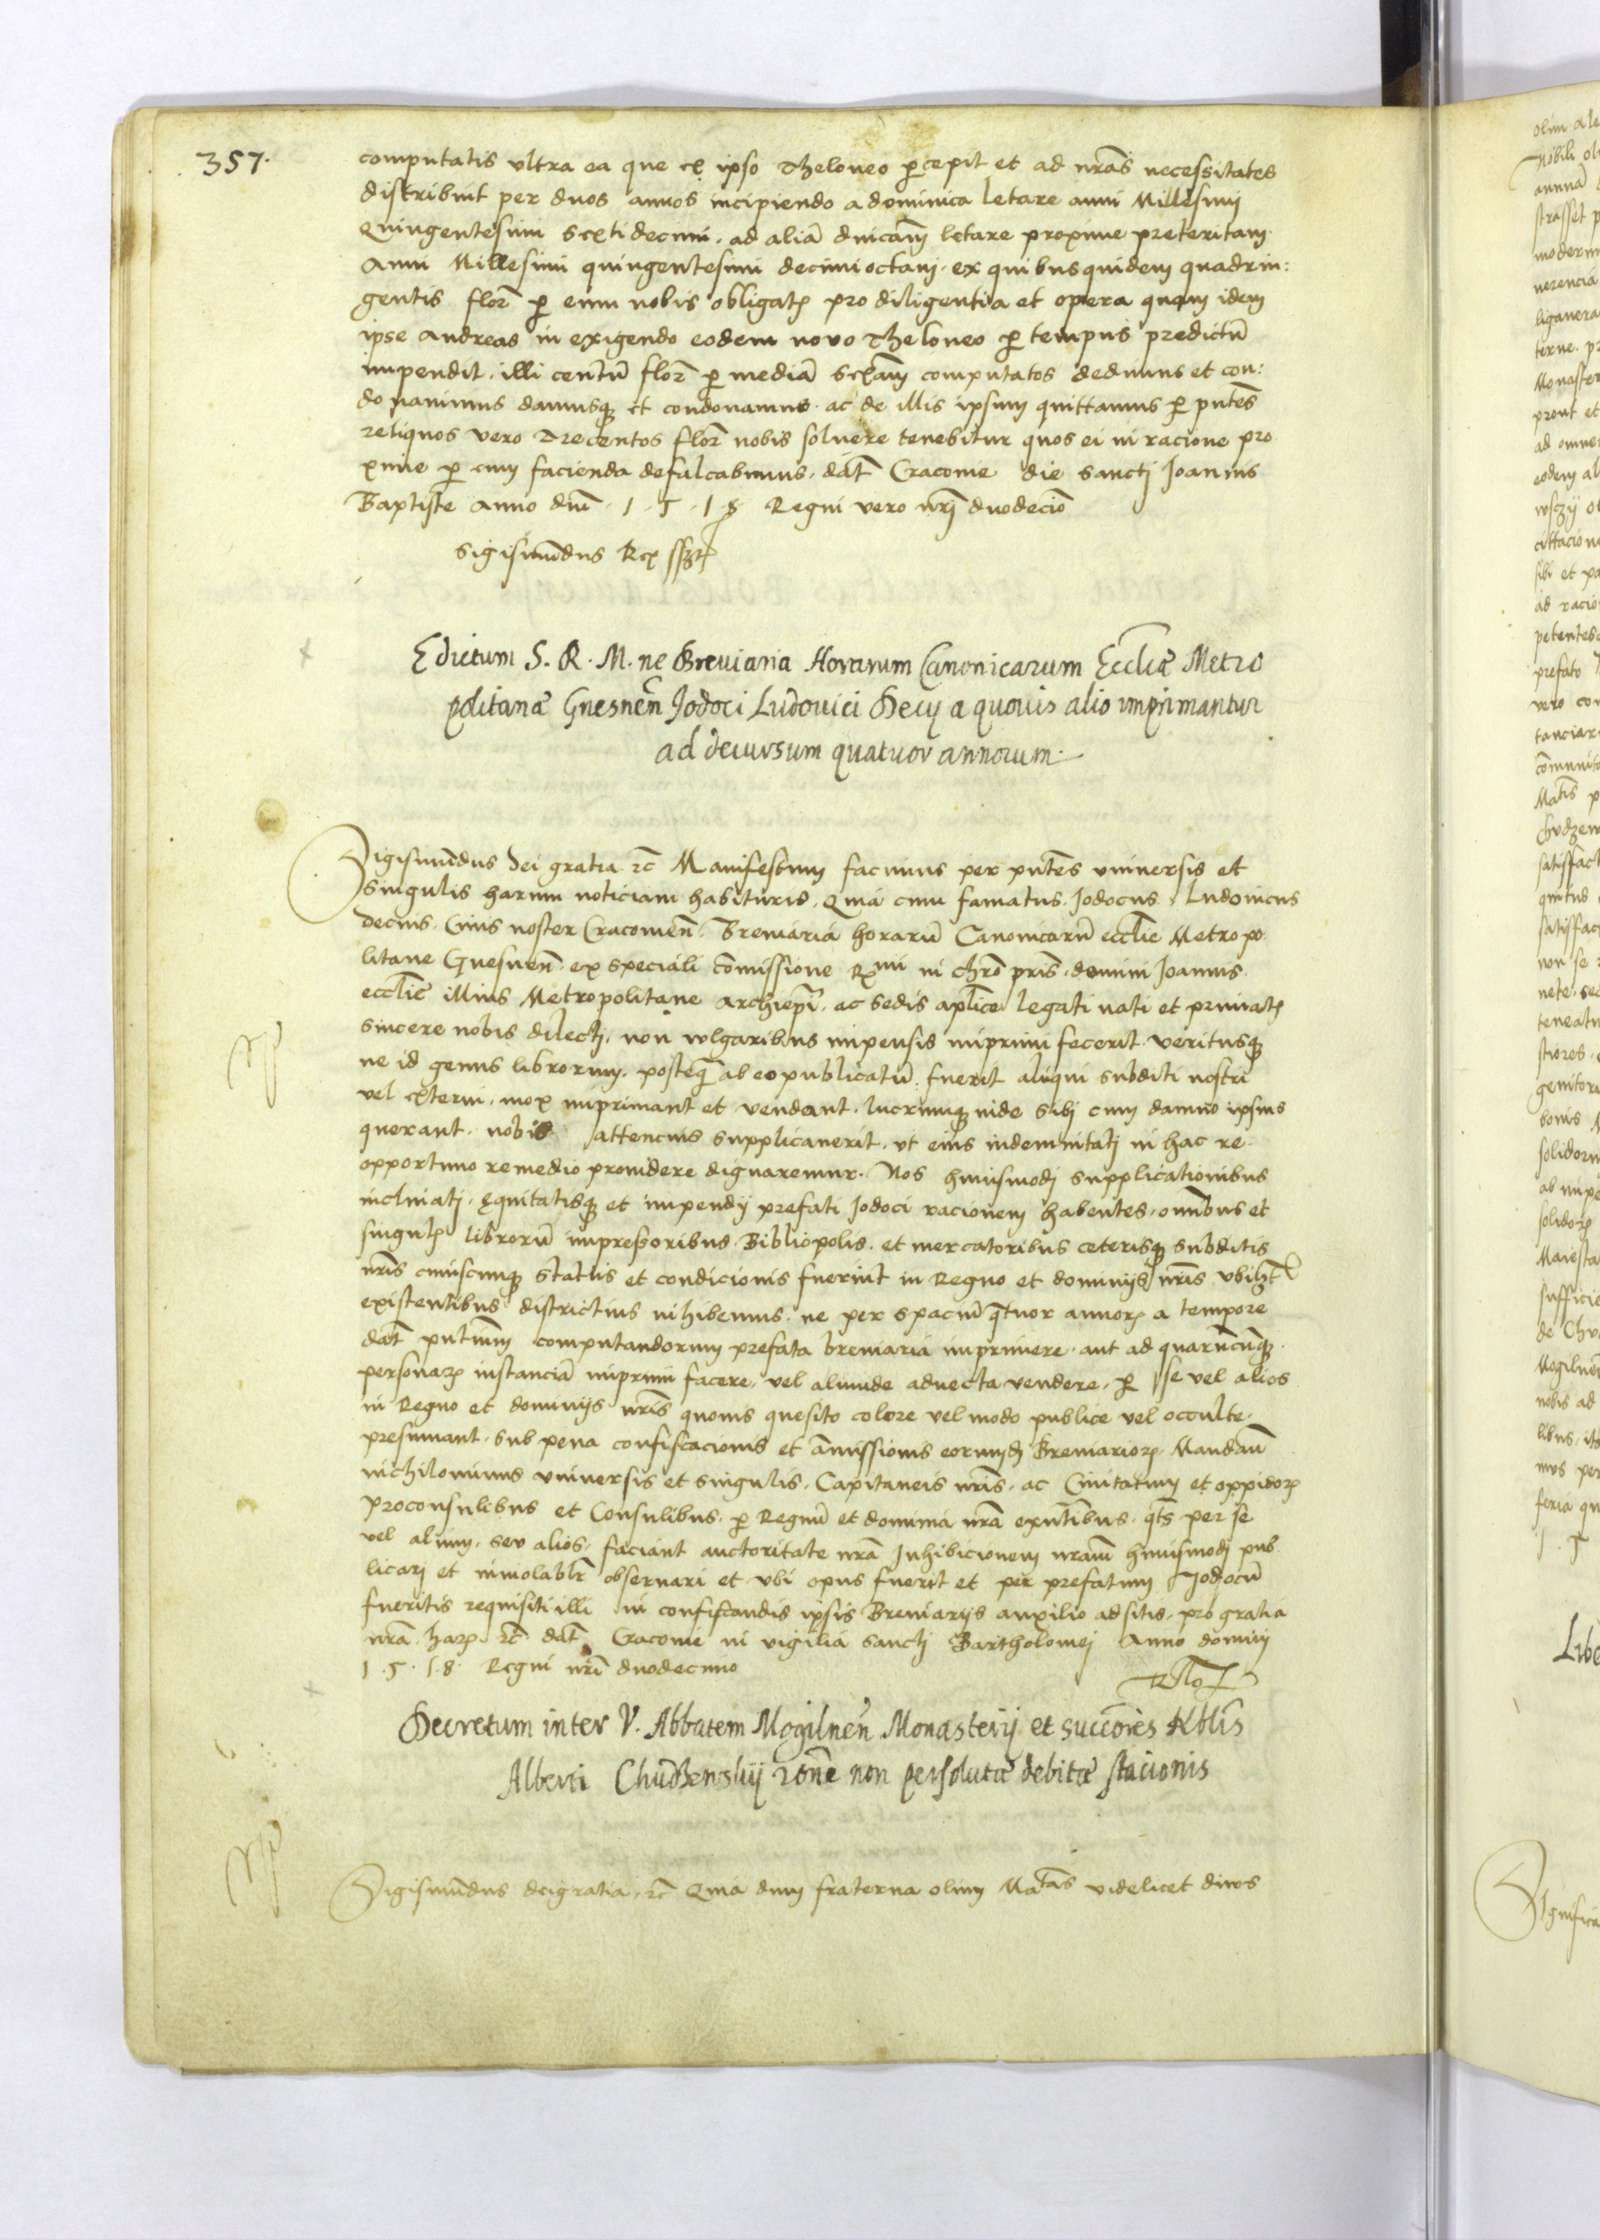 357.
computatis ultra ea que ex ipso Theloneo pcepit et ad nras necessitates
distribuit per duos annos incipiendo a dominica letare anni Millesimi
Quingentesimi sextidecimi, ad alia dnicam letare proxime preteritam
Anni Millesimi quingentesimi decimioctavi. ex quibusquidem quadrin:
gentis flor p eum nobis obligatis pro diligentia et opera quam idem
ipse Andreas in exigendo eodem novo Theloneo p tempus predictu
impendit. illi centu flor p media sexam computatos dedimus et con:
donavimus damusq et condonamus. ac de illis ipsum quittamus p pntes
reliquos vero Trecentos flor nobis solvere tenebitur quos ei in racione pro
xime p eum facienda defalcabimus. dat Cracovie die sancti Joannis
Baptiste Anno dni 1.5.18 Regni vero nri duodecio
Sigismudus Rex sszt
Edictum S. R. M. ne Breviaria Horarum Canonicarum Ecclie Metro
politanæ Gnesnen Jodoci Ludovici Decij a quovis alio imprimantur
ad decursum quatuor annorum.
Sigismudus dei gratia rc Manifestum facimus per pntes universis et
singulis harum noticiam habituris. Quia cum famatus Jodocus Ludovicus
decius, Civis noster Cracovien. Breviaria horaru Canonicaru ecclie Metropo
litane Gnesnen. ex speciali comissione Rmi in chro pris. domini Joannis
ecclie illius Metropolitane Archiepi. ac sedis aplice legati nati et primatis
sincere nobis dilecti, non vulgaribus impensis imprimi fecerit veritusq
ne id genus librorum. posteq ab eo publicatu fuerit aliqui subditi nostri
vel externi, mox imprimant et vendant. lucrumq inde sibi cum damno ipsius
querant. nobis attencius supplicaverit. ut eius indemnitati in hac re
opportuno remedio providere dignaremur. Nos huiusmodi supplicationibus
inclinati, equitatisq et impendij prefati Jodoci racionem habentes, omnibus et
singulis libroru impressoribus. Bibliopolis. et mercatoribus ceterisq subditis
nris cuiuscunq status et condicionis fuerint in Regno et dominijs nris ubilz
existentibus districtius inhibemus. ne per spaciu qtuor annor a tempore
dat pntium computandorum prefata breviaria imprimere. aut ad quarucunq
personar instancia imprimi facere, vel aliunde advecta vendere, p se vel alios
in Regno et dominijs nris quovis quesito colore vel modo publice vel occulte
presumant. sub pena confiscacionis et amissionis eorund Breviarior. Mandam
nichilominus universis et singulis. Capitaneis nris. ac Civitatum et oppidor
Proconsulibus et Consulibus. p Regnu et dominia nra exntibus. qts per se
vel alium, seu alios. faciant auctoritate nra Inhibicionem nram huiusmodi pub
licari et inviolablr observari et ubi opus fuerit et per prefatum Jodocu
fueritis requisiti illi in confiscandis ipsis Breviarijs auxilio adsitis. pro gratia
nra. har rc dat Cracovie in vigilia sancti Bartholomei Anno domini
1.5.18. Regni nri duodecimo
Decretum inter V. Abbatem Mogilnen Monasterij et succores Nblis
Alberti Chudzenskij rone non persolutæ debitæ stacionis
Sigismudus dei gratia. rc Quia dum fraterna olim Matas videlicet divus